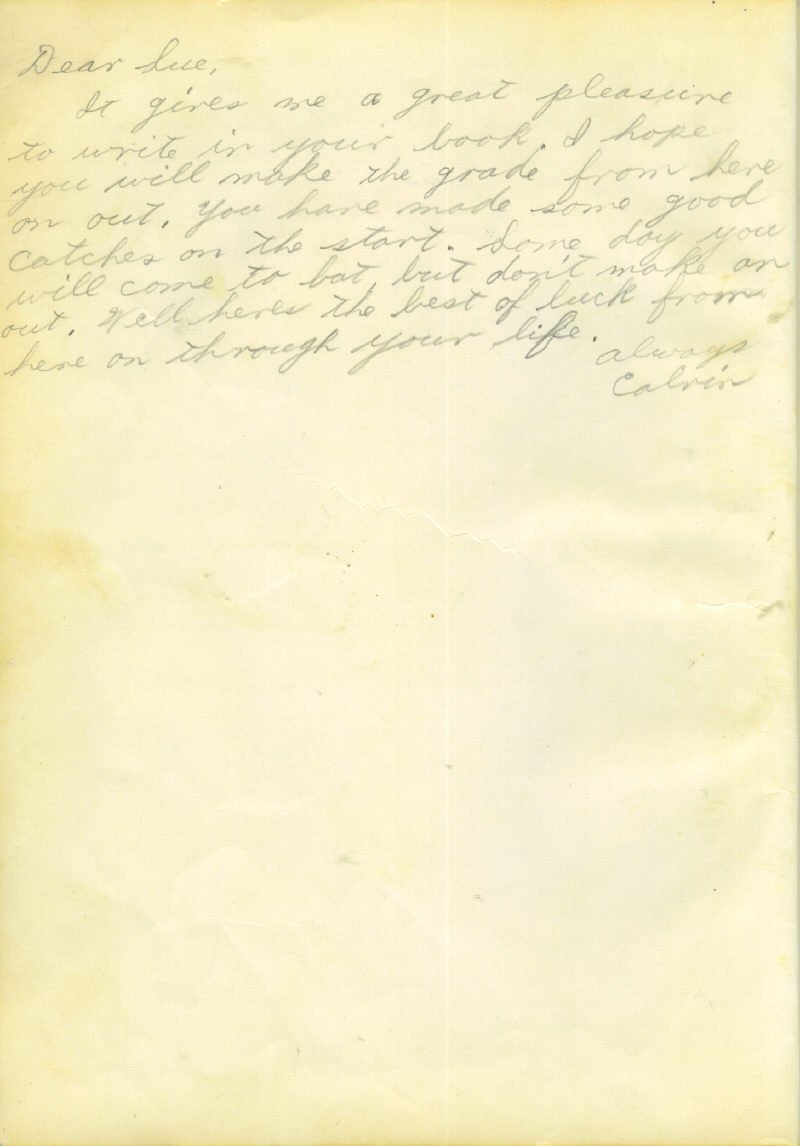 Dear Sue,
It gives me a great pleasure
to write in your book. I hope
you will make the grade from here
on out. You have made some good
catches on the start. Some day you
will come to bat, but don't make an
out. Well heres the best of luck from
here on through your life.
always
Calvin